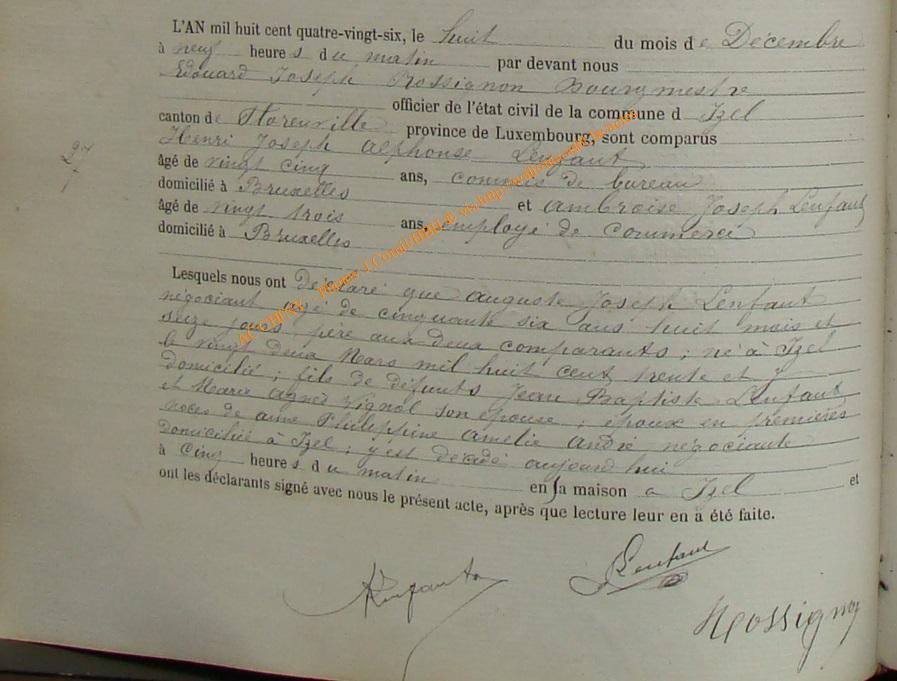 L'AN mil huit cent quatre-vingt-six, le huit du mois de Décembre
à neuf heures du matin par devant nous
Edouard Joseph Rossignon Bourgmestre
officier de l'état civil de la commune d Izel
canton de Florenville province de Luxembourg, sont comparus
Henri Joseph Alphonse Lenfant
27
âgé de vingt cinq ans, commis de bureau
domicilié à Bruxelles et Ambroise Joseph Lenfant
âgé de vingt trois ans, employé de commerce
domicilié à Bruxelles
Lesquels nous ont déclaré que Auguste Joseph Lenfant
négociant agé de cinquante six ans huit mois et
seize jours père aux deux comparants ; né à Izel
le vingt deux Mars mil huit cent trente et y
domicilié ; fils de défunts Jean Baptiste Lenfant
et Marie Agnès Vignol son épouse ; époux en premières
noces de Anne Philippine Amelie André négociante
domiciliée à Izel ; y est décédé aujourd'hui
à cinq heures du matin en sa maison a Izel et
ont les déclarants signé avec nous le présent acte, après que lecture leur en a été faite.
Lenfant
Rossignon